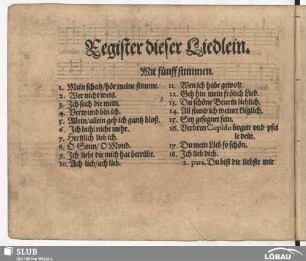 Register dieser Liedlein.
Mit fünff stimmen.
1. Mein schatz/ hör meine stimme.
2. Wer nicht weis.
3. Ich such die mein.
4. Verwund bin ich.
5. Allein/ allein geh ich gantz bloß.
6. Ich buhl nicht mehr.
7. Hertzlich lieb ich.
8. O Sonn/ O Mond.
9. Ich liebe die mich hat betrübt.
10. Ach lieb/ ach lieb.
11. Wen ich habe gewolt.
12. Geh hin mein frölich Lied.
13. Du schöne Beurin lieblich.
14. All stund ich weinet kleglich.
15. Sey gesegnet fein.
16. Verbrem Cupido bogen und pfeil
17. Du mein Lieb so schön.
18. Ich lieb dich.
2. pars. Du bist die liebste mir
SLUB
Wir führen Wissen.
LÖBAU